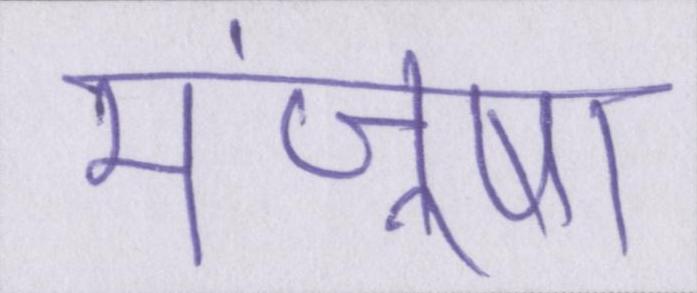 मंजूषा